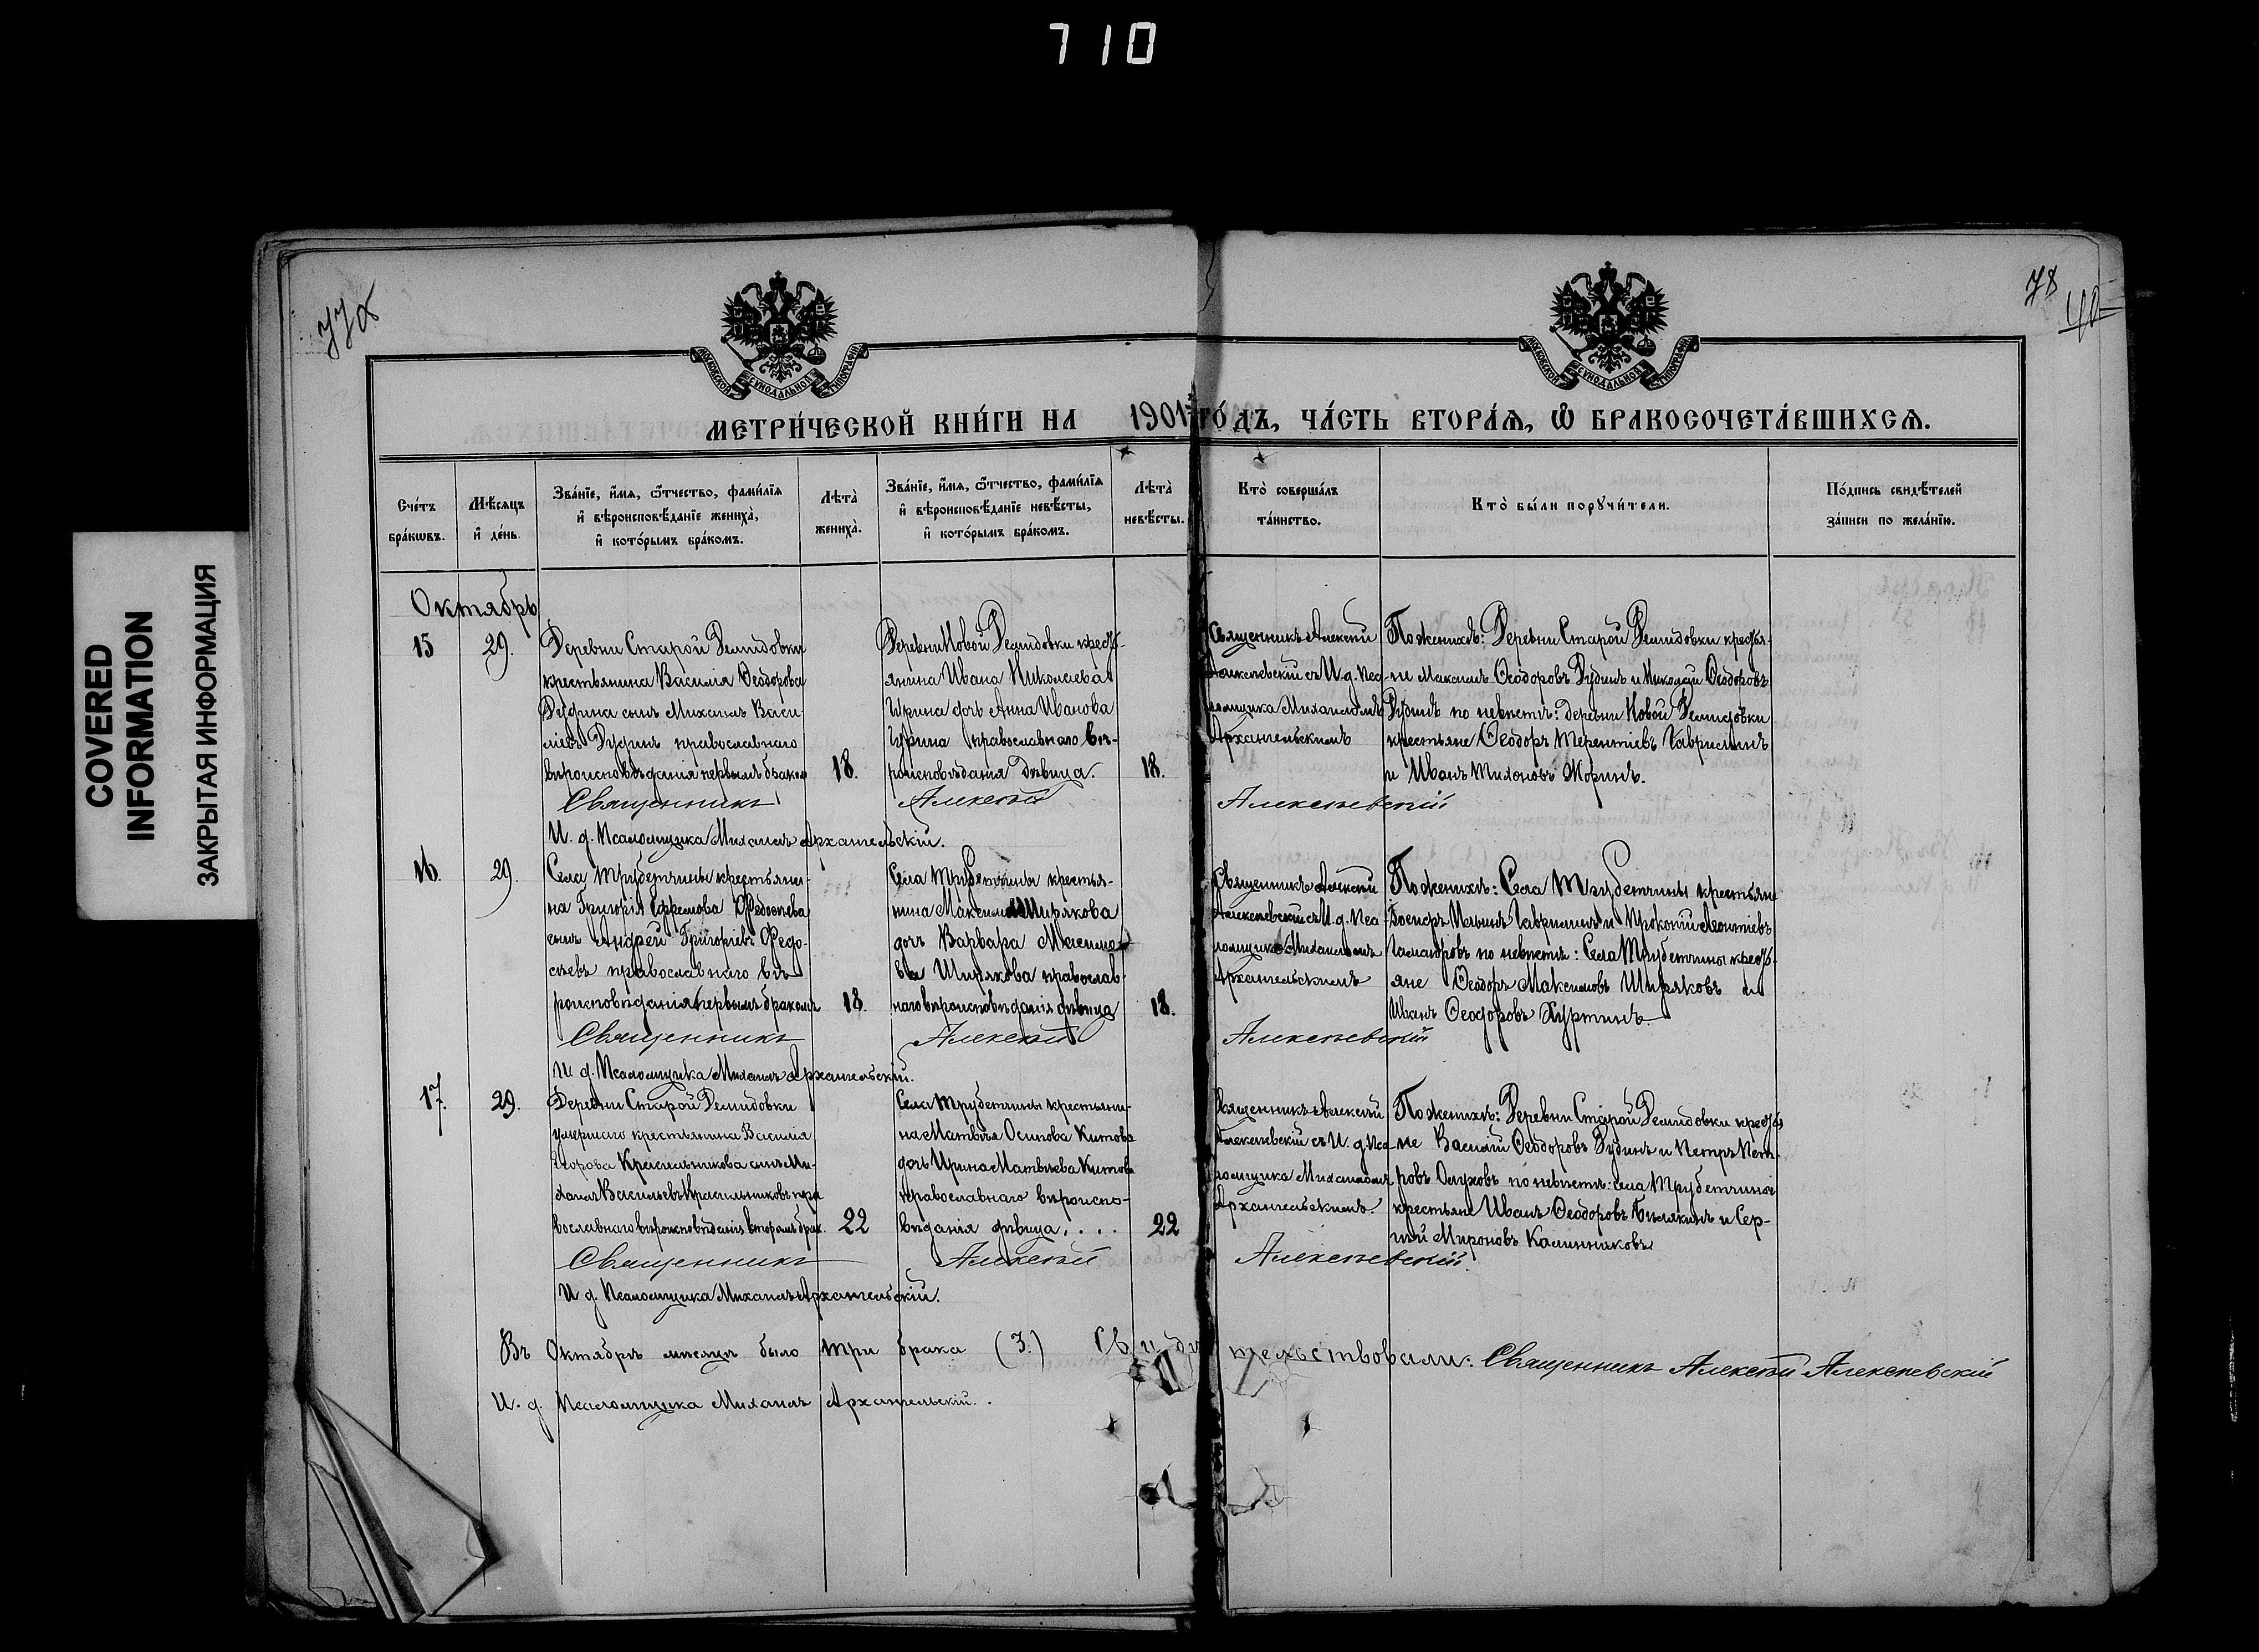 710
COVERED
INFORMATION
ЗАКРЫТАЯ ИНФОРМАЦИЯ
77об
78
МОСКОВСКОЙ СѴНОДАЛЬНОЙ ТИПОГРАФІИ
МОСКОВСКОЙ СѴНОДАЛЬНОЙ ТИПОГРАФІИ
МЕТРИ́ЧЕСКОЙ КНИ́ГИ НА 1901 ГО́ДЪ, ЧА́СТЬ ВТОРА́Ѧ, Ѽ БРАКОСОЧЕТА́ВШИХСѦ.
Сче́тъ бра́кωвъ.
Мѣ́сяцъ и҆ де́нь.
Зва́нїе, и҆́мѧ, ѻ҆́тчество, фами́лїѧ и҆ вѣроисповѣ́данїе жениха̀, и҆ кото́рымъ бра́комъ.
Лѣта̀ жениха̀.
Зва́нїе, и҆́мѧ, ѻ҆́тчество, фами́лїѧ и҆ вѣроисповѣ́данїе невѣ́сты, и҆ кото́рымъ бра́комъ.
Лѣта̀ невѣ́сты.
Кто̀ соверша́лъ та́инство.
Кто̀ бы́ли порꙋчи́тели.
По́дпись свидѣ́телей за́писи по жела́нїю.
Октябрь
15
29.
Деревни Старой Демидовки
крестьянина Василія Ѳеодорова
Дудина сынъ Михаилъ Васи
ліевъ Дудинъ православнаго
вѣроисповѣданія первымъ бракомъ
18.
Деревни Новой Демидовки кресть-
янина Ивана Николаева
Гурина дочь Анна Иванова
Гурина православнаго вѣ-
роисповѣданія дѣвица.
18.
Священникъ Алексѣй
Алексѣевскій съ И. д. Пса
ломщика Михаиломъ
Архангельскимъ
По женихѣ: Деревни Старой Демидовки крестья-
не Максимъ Ѳеодоровъ Дудинъ и Николай Ѳеодоровъ
Дудинъ по невѣстѣ: деревни Новой Демидовки
крестьяне Ѳеодоръ Терентіевъ Гаврилинъ
и Иванъ Тихоновъ Жоринъ.
Священникъ Алексѣй Алексѣевскій
И. д. Псаломщика Михаилъ Архангельскій.
16.
29.
Села Трубетчины крестьяни-
на Григорія Ефремова Ѳедосѣева
сынъ Андрей Григоріевъ Ѳедо-
сѣевъ православнаго вѣ-
роисповѣданія первымъ бракомъ
18.
Села Трубетчины крестья-
нина Максима Ширякова
дочь Варвара Максимо-
ва Ширякова православ
наго вѣроисповѣданія дѣвица
18.
Священникъ Алексѣй
Алексѣевскій съ И. д. Пса
ломщика Михаиломъ
Архангельскимъ
По женихѣ: Села Трубетчины крестьяне
Ильинъ Гаврилинъ и Прокопій Леонтіевъ
по невѣстѣ: Села Трубетчины кресть-
яне Ѳеодоръ Максимовъ Ширяковъ и
Иванъ Ѳеодоровъ
Священникъ Алексѣй Алексѣевскій
И. д. Псаломщика Михаилъ Архангельскій.
17.
29.
Деревни Старой Демидовки
умершаго крестьянина Василія
Егорова Красильникова сынъ Ми-
хаилъ Васильевъ Красильниковъ пра
вославнаго вѣроисповѣданія вторымъ брак.
22
Села Трубетчины крестьяни-
на Матвѣя Осипова Китова
дочь Ирина Матвѣева Китова
православнаго вѣроиспо-
вѣданія дѣвица....
22
Священникъ Алексѣй
Алексѣевскій съ И. д. Пса
ломщика Михаиломъ
Архангельскимъ.
По женихѣ: Деревни Старой Демидовки кресть
не Василій Ѳеодоровъ Дудинъ и Петръ Пет-
ровъ по невѣстѣ: села Трубетчины
крестьяне Иванъ Ѳеодоровъ и Сер-
гій Мироновъ Калинниковъ
Священникъ Алексѣй Алексѣевскій.
И. д. Псаломщика Михаилъ Архангельскій.
Въ Октябрѣ мѣсяцѣ было три брака (3.) Свидѣтельствовали: Священникъ Алексѣй Алексѣевскій
И. д. Псаломщика Михаилъ Архангельскій.